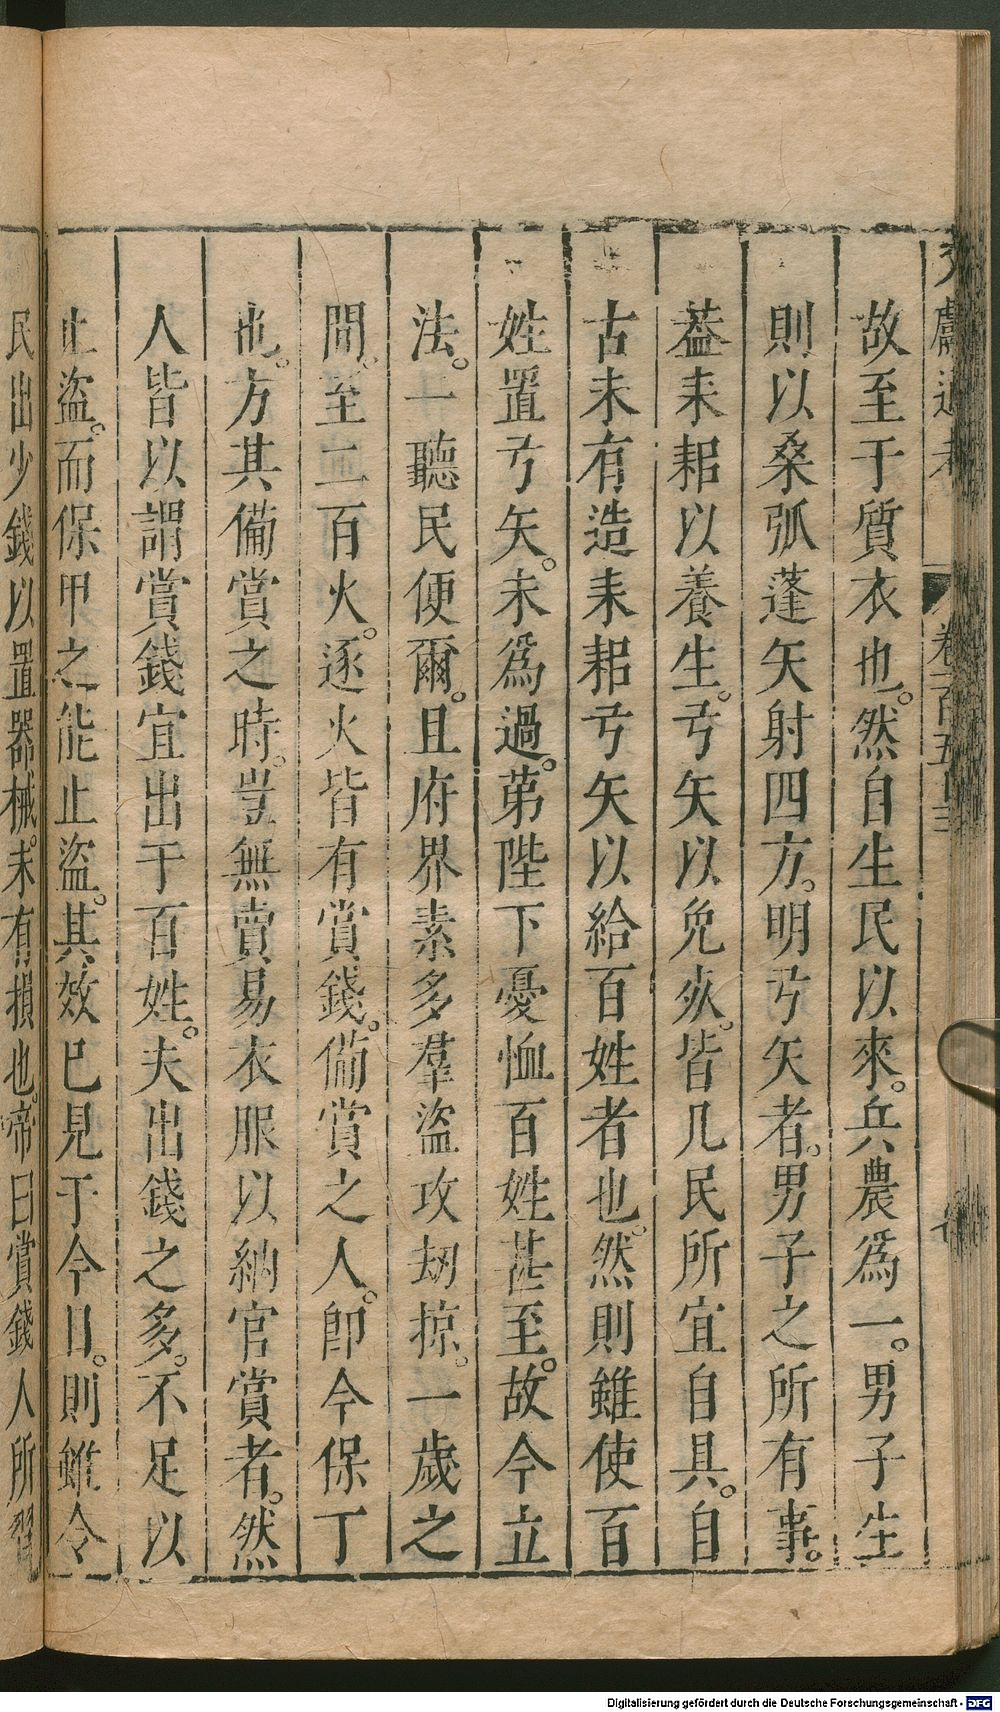 故至于質衣也。然自生民以來。兵農爲一。男子生
則以桑弧蓬矢射四方。明弓矢者。男子之所有事。
葢耒耜以養生。弓矢以免死。皆凡民所宜自具。自
古未有造耒耜弓矢以給百姓者也。然則雖使百
姓置弓矢。未爲過。苐陛下憂恤百姓甚至。故今立
法。一聽民便爾。且府界素多羣盜攻刼掠。一歲之
間。至二百火。逐火皆有賞錢。備賞之人。卽今保丁
也。方其備賞之時。豈無賣易衣服以納官賞者。然
人皆以謂賞錢宜出于百姓。夫出錢之多。不足以
止盜。而保甲之能止盜。其效已見于今日。則雖令
民出少錢以置器械。未有損也。帝曰賞錢人所習
Digitalisierung gefördert durch die Deutsche Forschungsgemeinschaft - DFG